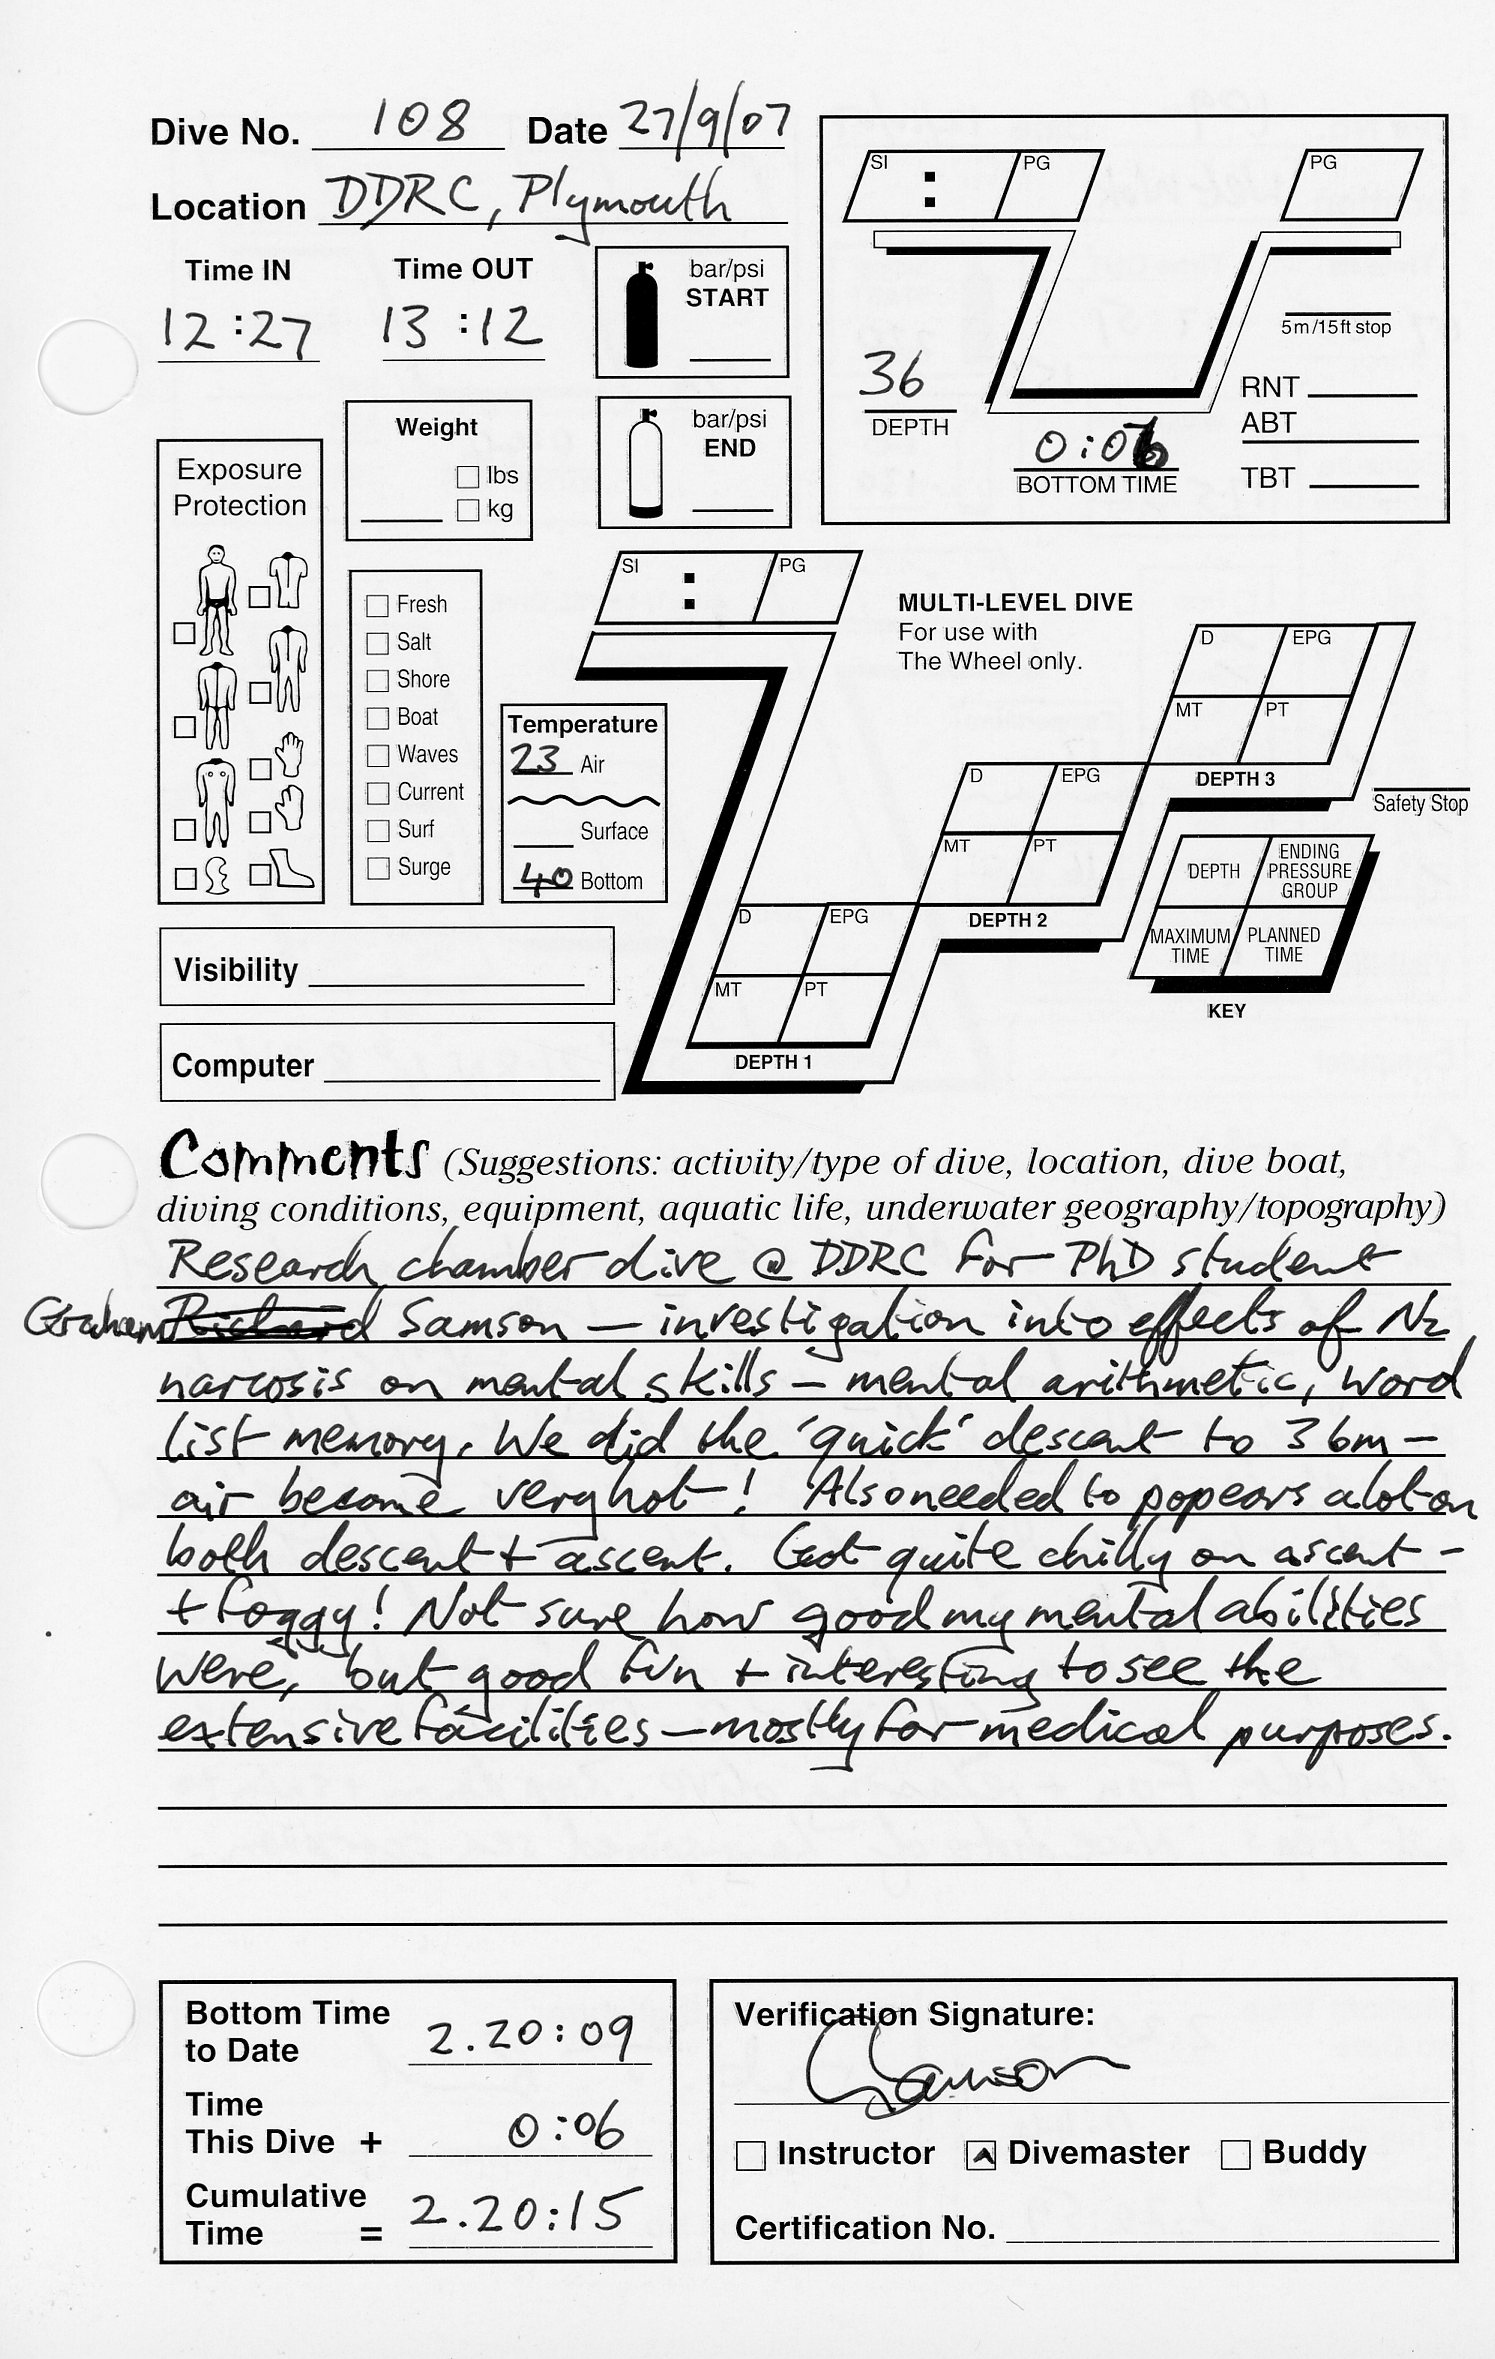 Dive No. 108 Date 27/9/07
Location DDRC, Plymouth
Time IN Time OUT
12:27 13:12
bar/psi
START
bar/psi
END
Weight
lbs
kg
Exposure
Protection
Fresh
Salt
Shore
Boat
Waves
Current
Surf
Surge
Temperature
23 Air
Surface
40 Bottom
Visibility
Computer
SI : PG PG
5m/15ft stop
36
DEPTH
0:06
BOTTOM TIME
RNT
ABT
TBT
SI : PG
MULTI-LEVEL DIVE
For use with
The Wheel only.
D EPG
MT PT
DEPTH 3
Safety Stop
D EPG
MT PT
DEPTH 2
D EPG
MT PT
DEPTH 1
DEPTH ENDING
PRESSURE
GROUP
MAXIMUM
TIME
PLANNED
TIME
KEY
Comments (Suggestions: activity/type of dive, location, dive boat,
diving conditions, equipment, aquatic life, underwater geography/topography)
Research chamber dive @ DDRC for PhD student
Graham Richard Samson – investigation into effects of N2
narcosis on mental skills – mental arithmetic, word
list memory. We did the 'quick' descent to 36m –
air became very hot! Also needed to pop ears a lot on
both descent + ascent. Got quite chilly on ascent –
+ foggy! Not sure how good my mental abilities
were, but good fun + interesting to see the
extensive facilities – mostly for medical purposes.
Bottom Time
to Date 2.20:09
Time
This Dive + 0:06
Cumulative
Time = 2.20:15
Verification Signature:
GSamson
Instructor Divemaster Buddy
Certification No.